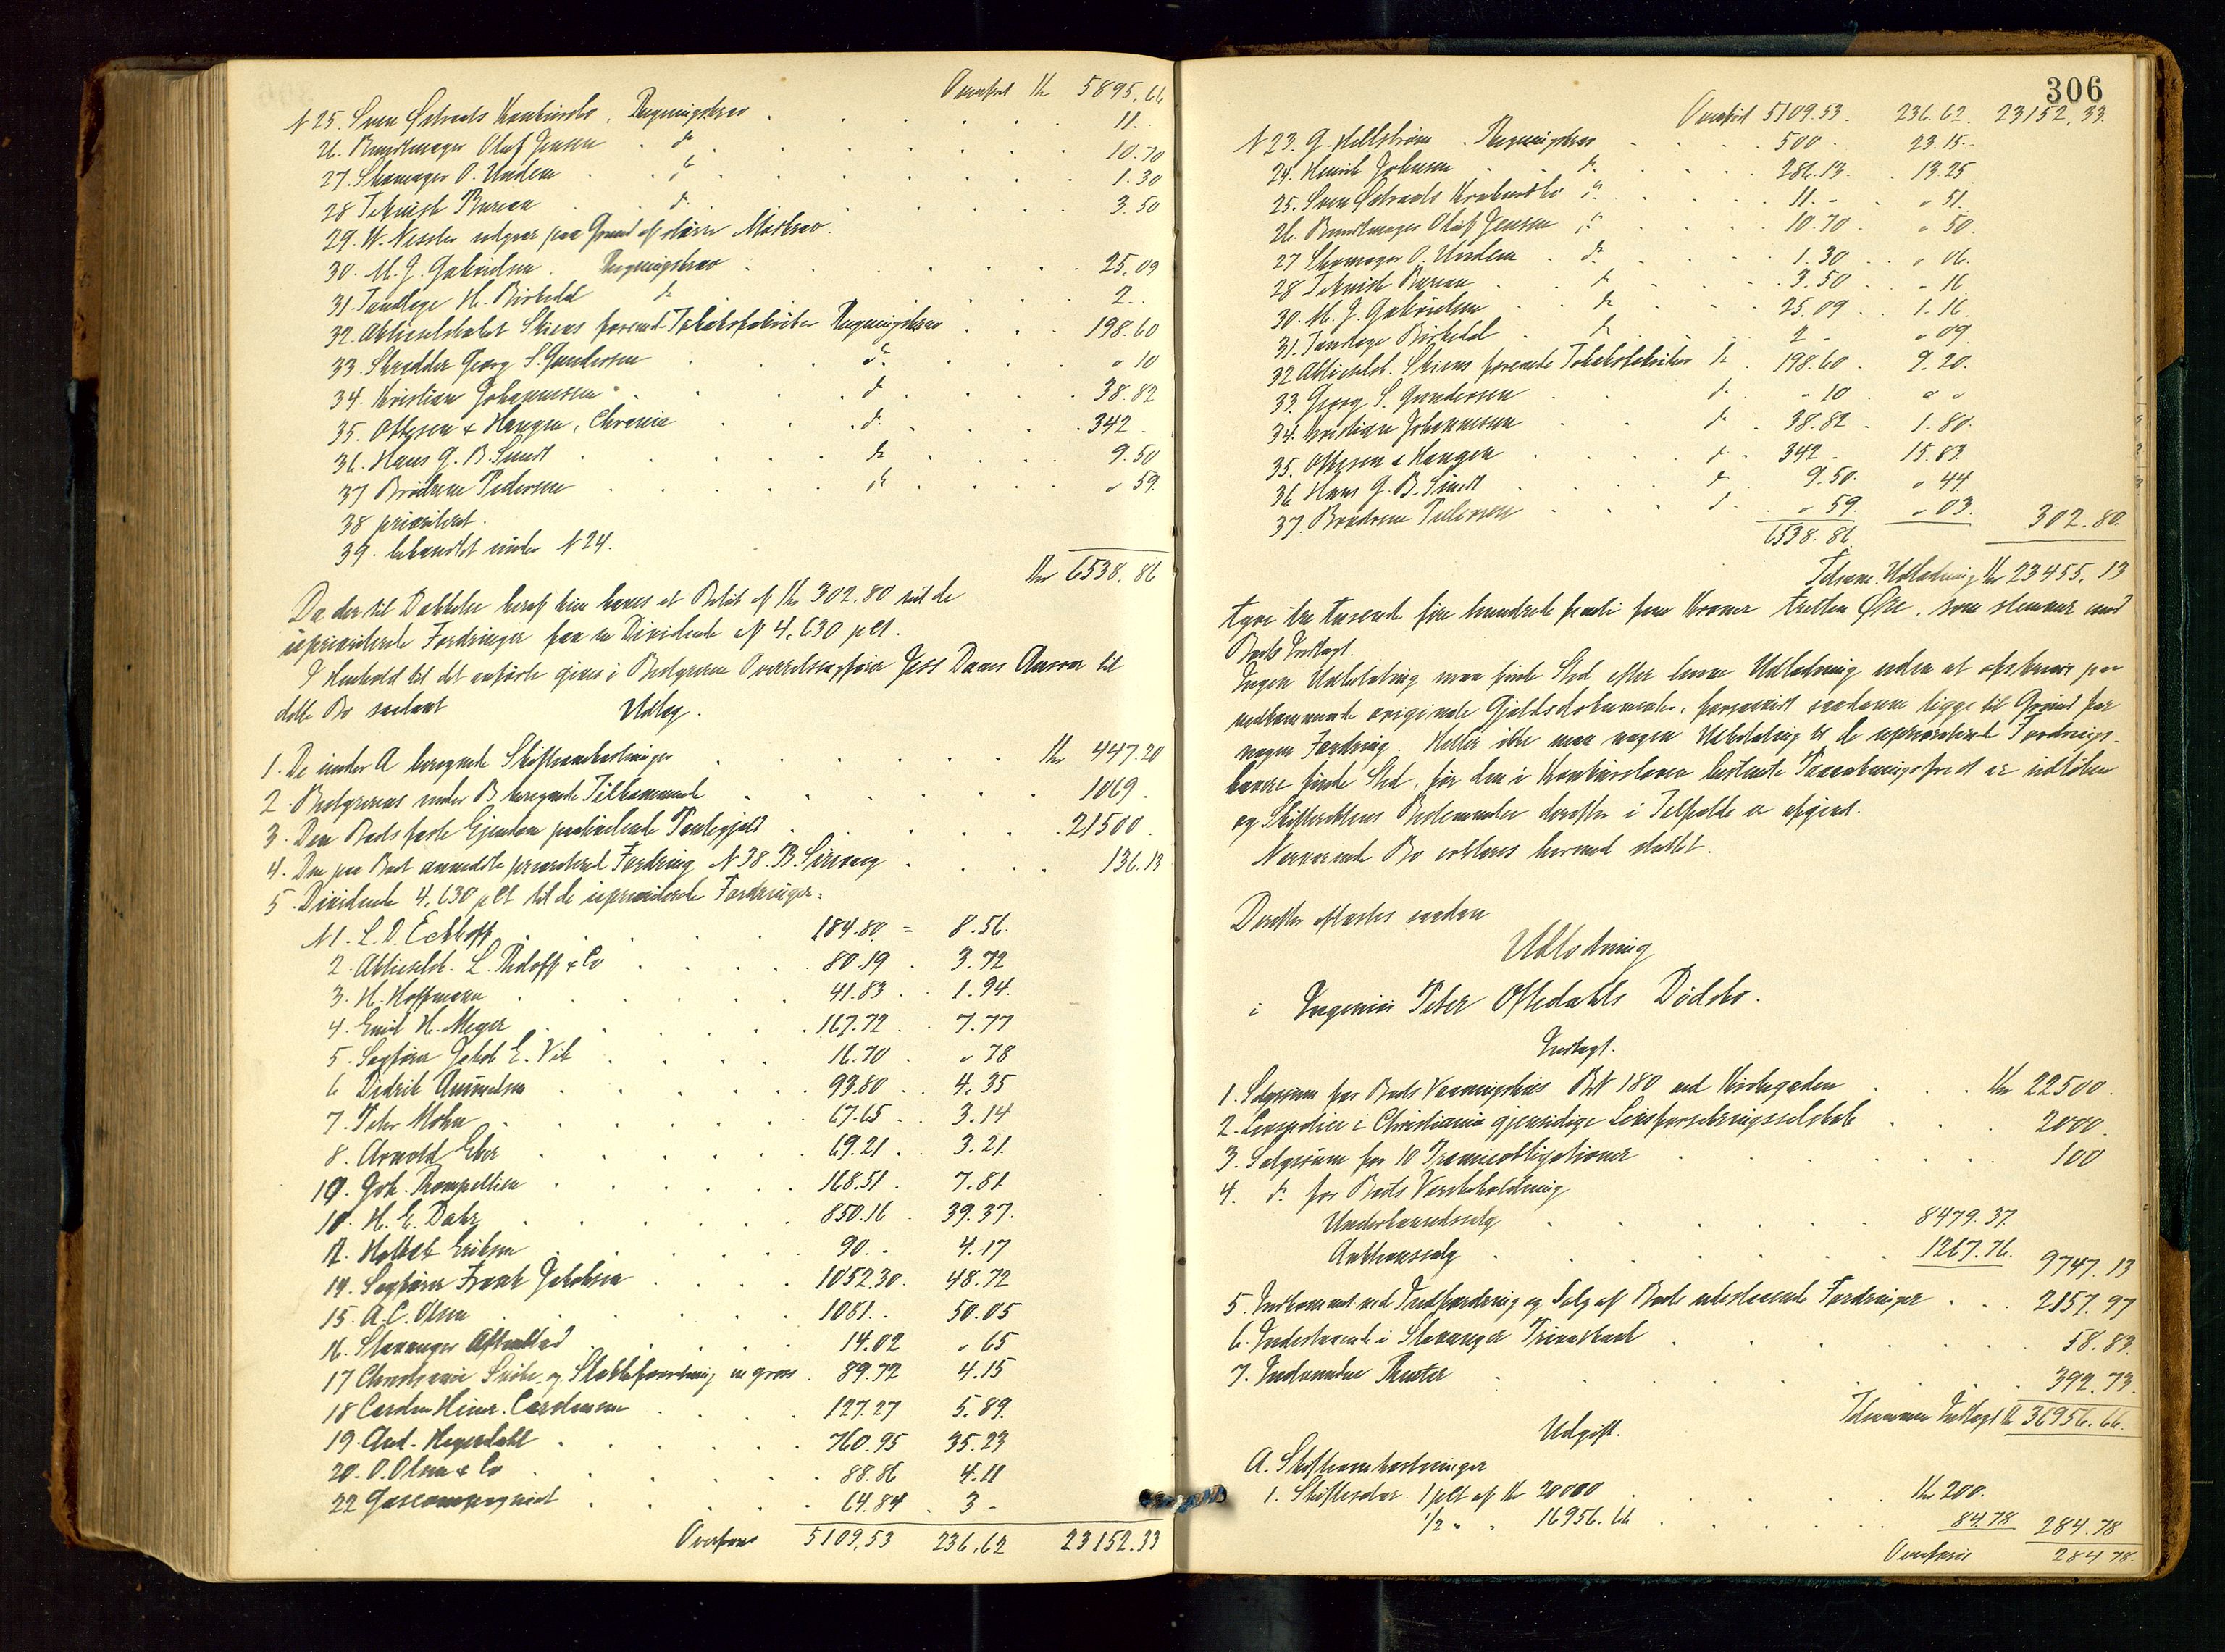 Overført Kr 5895.66
N 25. Sven Setraals Konkursbo, Regningskrav 11.-
26. Bundtmager Oluf Jensen do 10.70
27. Skomager O. Undem do 1.30
28 Teknisk Bureau do 3.50
29. W. Nessler udgaar paa Grund af større Modkrav.
30. M. J. Gabrielsen. Regningskrav 25.09
31. Tandlæge H. Birkedal do 2..
32. Aktieselskabet Skiens forened. Tobaksfabriker Regningskrav 198.60
33. Skrædder Georg S. Gundersen do " 10
34. Kristian Johannessen do 38.82
35. Ottesen & Haugen, Chrania do 342.
36. Hans G. B. Sundt do 9.50
37 Brødrene Pedersen do " 59.
38 prioriteret.
39. behandlet under N 24.
Kr 6538.86
Da der til Dækkelse heraf kun haves et Beløb af Kr 302.80 vil de
uprioriterede Fordringer faa en Dividende af 4.630 pCt.
I Henhold til det anførte gives i Bestyreren Overretssagfører Jess Daes Aanson til
dette Bo saadant
Udlæg.
1. De under A beregnede Skifteomkostninger Kr 447.20
2. Bestyrerens under B beregnede Tilkommende 1069.
3. Den Boets faste Eiendom paahvilende Pantegjæld 21500.
4. Den paa Boet anmeldte prioriteret Fordring N 38. B. 136.13
5. Dividende 4.630 pCt til de uprioriterede Fordringer:
N 1. L. D. Eckhoff 184.80 = 8.56.
2. Aktieselsk. L. Tholoff & Co 80.19 3.72
3. H. Hoffmann 41.83 1.94.
4. Emil H. Meyer 167.72 7.77
5. Sagfører Jakob E. Vik 16.70 " 78
6 Didrik Amundsen 93.80 4.35
7. Peter Mohn 67.65 3.14
8. Arnold Eber 69.21 3.21.
10. Joh. Rompeltien 168.51 7.81
11. H. E. Dahr 850.16 39.37.
12. Eriksen 90.- 4.17
14. Sagfører Frank Jakobsen 1052.30. 48.72
15. A. C. Olsen 1081.. 50.05
16. Stavanger Aftenblad 14.02 " 65
17 Christiania Snøre og Skaftefor­retning en gros 89.72 4.15
18 Carsten Heinr. Carstensen 127.27 5.89.
19. And. Hegerdahl 760.95 35.23
20. O. Olsen & Co 88.86 4.11
22 Gascompagniet 64.84 3-
Overføres 5109.53 236.62 23152.33
306
Overført 5109.53. 236.62. 23152.33.
N 23. G. Hellstrøm Regningskrav 500. 23.15.
24. Henrik Johnsen do 286.13. 13.25
25. Sven Setraals Konkursbo do 11.- " 51.
26. Bundtmager Oluf Jensen do 10.70 " 50.
27 Skomager O. Undem do 1.30 " 06.
28 Teknisk Bureau do 3.50 " 16
30. M. J. Gabrielsen do 25.09 1.16.
31. Tandlæge Birkedal do 2.- " 09.
32 Aktieselsk. Skiens forenede Tobaksfabriker do 198.60 9.20.
33. Georg S. Gundersen do " 10 " "
34. Kristian Johannessen do 38.82 1.80.
35. Ottesen & Haugen do 342- 15.83.
36 Hans G. B. Sundt do 9.50. " 44.
37. Brødrene Pedersen do " 59. " 03. 302.80.
6538.86.
Tilsam. Udlodning Kr 23455.13
tyve tre tusende fire hundrede femti fem Kroner tretten Øre, som stemmer med
Boets Indtægt.
Ingen Udbetaling maa finde Sted efter denne Udlodning uden at afskrives paa
vedkommende originale Gjældsdokumenter, forsaavidt saadanne ligge til Grund for
nogen Fordring. Heller ikke maa nogen Udbetaling til de uprioriterede Fordrings-
havere finde Sted, før den i Konkursloven bestemte Paaankningsfrist er udløben
og Skifterettens Bestemmelse derefter i Tilfælde er afgivet.
Nærværende Bo erklæres hermed sluttet.
Derefter afsluttes saadan
Udlodning
i Ingeniør Peter Oftedahls Dødsbo.
Indtægt.
1. Salgssum for Boets Vaaningshus B N 180 ved Kirkegaden Kr 22500.
2. Livspolice i Christiania gjensidige Livsforsikringsselskab 2000.
3. Salgssum for 10 Præmieobligationer 100
4. do for Boets Værkbeholdning
Underhaandssalg 8479.37.
Auktionssalg 1267.76. 9747.13
5. Indkommet ved Indfordring og Salg af Boets udestaaende Fordringer 2157.97
6. Indestaaende i Stavanger Privatbank 58.83.
7. Indvundne Renter 392.73.
Tilsammen Indtægt Kr 36956.66.
Udgift.
A. Skifteomkostninger
1. Skiftesalær. 1 pCt af Kr 20000 Kr 200.
1/2 " " 16956.66 84.78 284.78
Overføres 284.78.